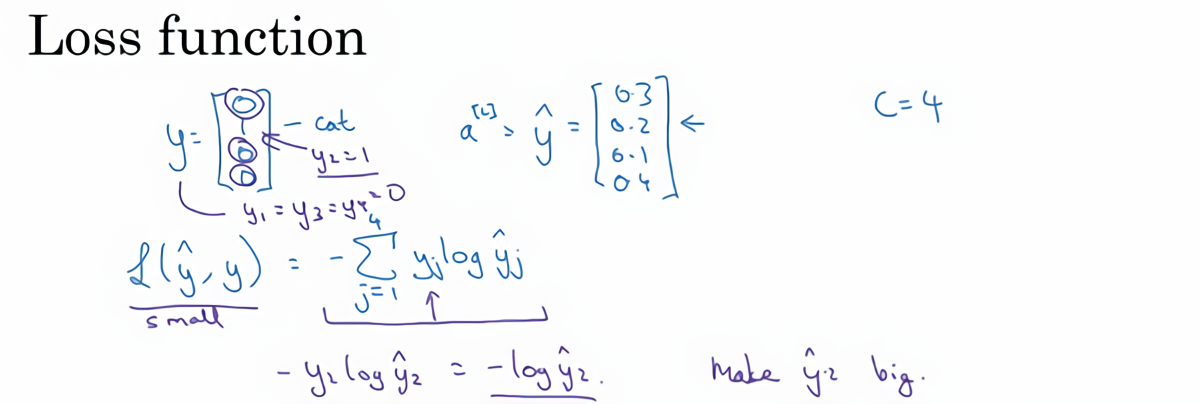 Loss function
y = [0 1 0 0] - cat
y₂ = 1
y₁ = y₃ = y₄ = 0
a^[L] = ŷ = [0.3 0.2 0.1 0.4] ←
C = 4
L(ŷ, y) = - Σ_{j=1}^{4} y_j log ŷ_j
small
- y₂ log ŷ₂ = - log ŷ₂. Make ŷ₂ big.